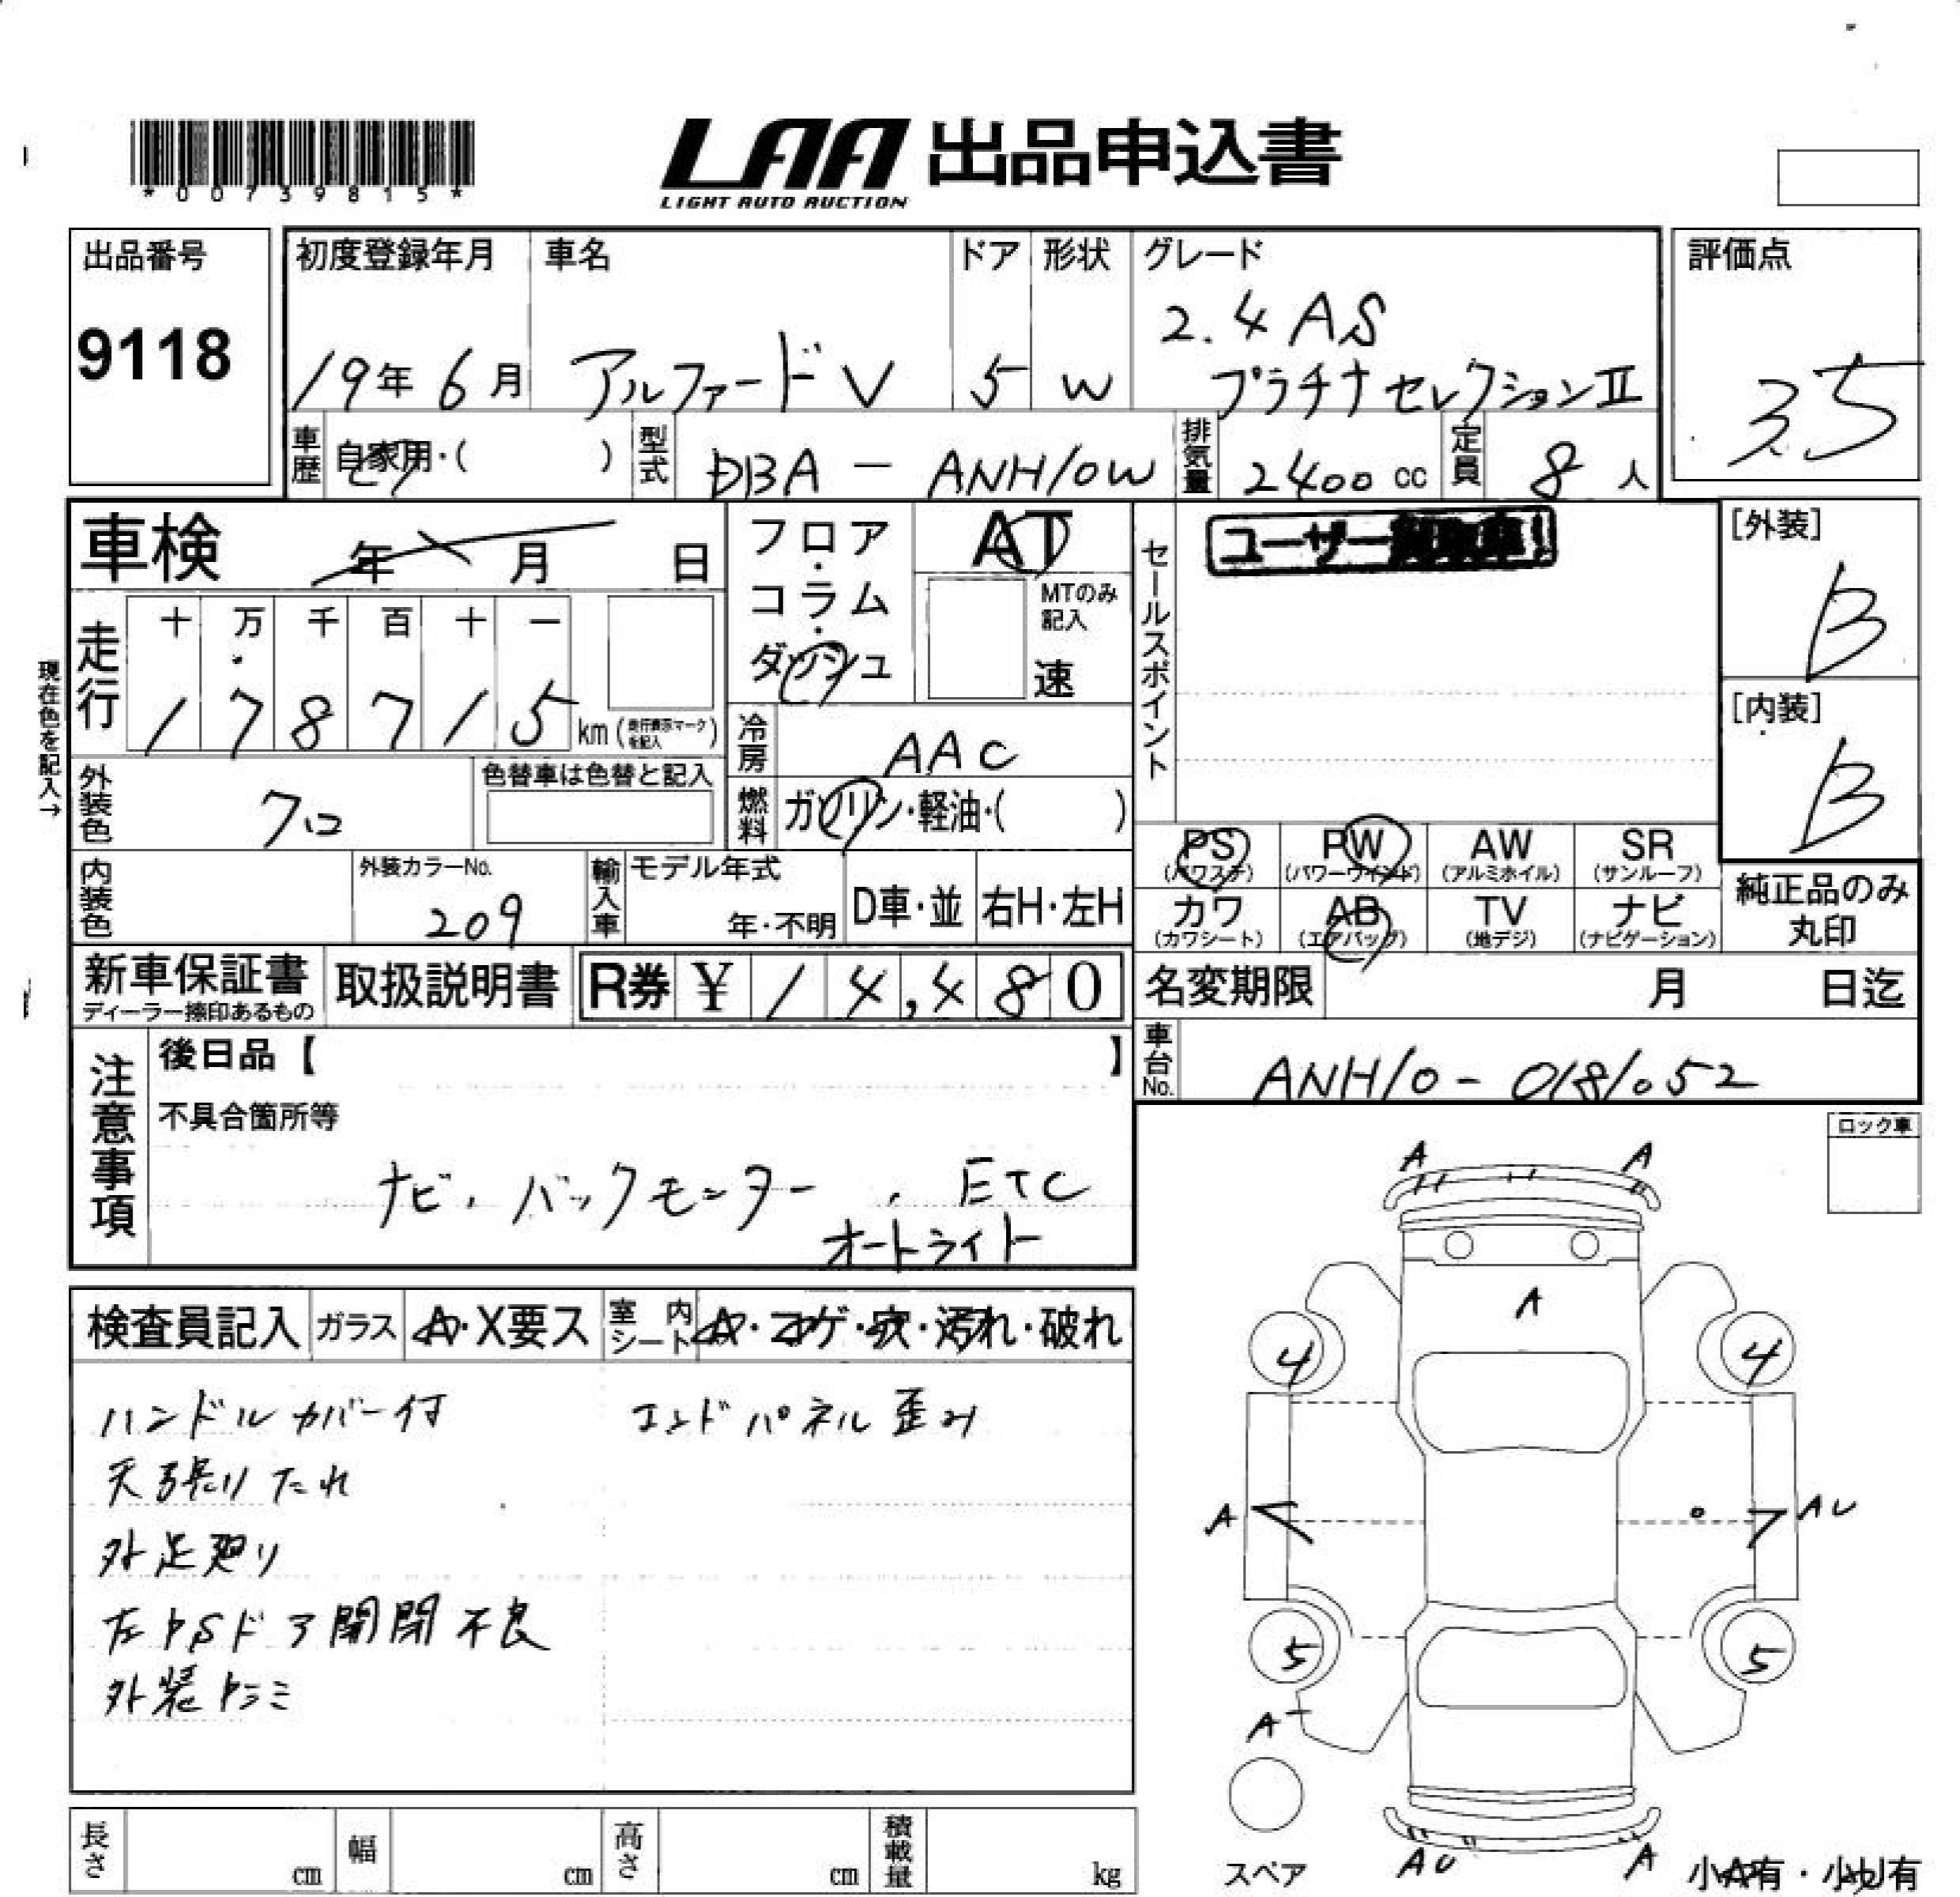 *00739815*
LAA 出品申込書
LIGHT AUTO AUCTION
出品番号
9118
初度登録年月
19年6月
車名
アルファードV
ドア
5
形状
W
グレード
2.4 AS
プラチナセレクションII
評価点
3.5
車歴
自家用・( )
型式
DBA - ANH10W
排気量
2400 cc
定員
8人
車検
年 月 日
フロア・コラム・ダッシュ
AT
MTのみ記入
速
セールスポイント
ユーザー
[外装]
B
[内装]
B
現在色を記入→
走行
十 万 千 百 十 一
1 7 8 7 1 5 km (走行表示マークを記入)
冷房
AAC
燃料
ガソリン・軽油・( )
外装色
クロ
色替車は色替と記入
内装色
外装カラーNo.
209
輸入車
モデル年式
年・不明
D車・並
右H・左H
PS
(パワステ)
PW
(パワーウインド)
AW
(アルミホイル)
SR
(サンルーフ)
カワ
(カワシート)
AB
(エアバッグ)
TV
(地デジ)
ナビ
(ナビゲーション)
純正品のみ
丸印
新車保証書
ディーラー捺印あるもの
取扱説明書
R券 ¥14,480
名変期限
月 日迄
車台No.
ANH10-0181052
注意事項
後日品【 】
不具合箇所等
ナビ、バックモニター、ETC
オートライト
ロック車
検査員記入
ガラス
A・X要ス
室内シート
A・コゲ・穴・汚れ・破れ
ハンドルカバー付
エンドパネル歪み
天張りたれ
外足廻り
左PSドア開閉不良
外装キズミ
A A
A
4 4
A AU
5 5
A
AU A
スペア
小A有・小U有
長さ cm
幅 cm
高さ cm
積載量 kg